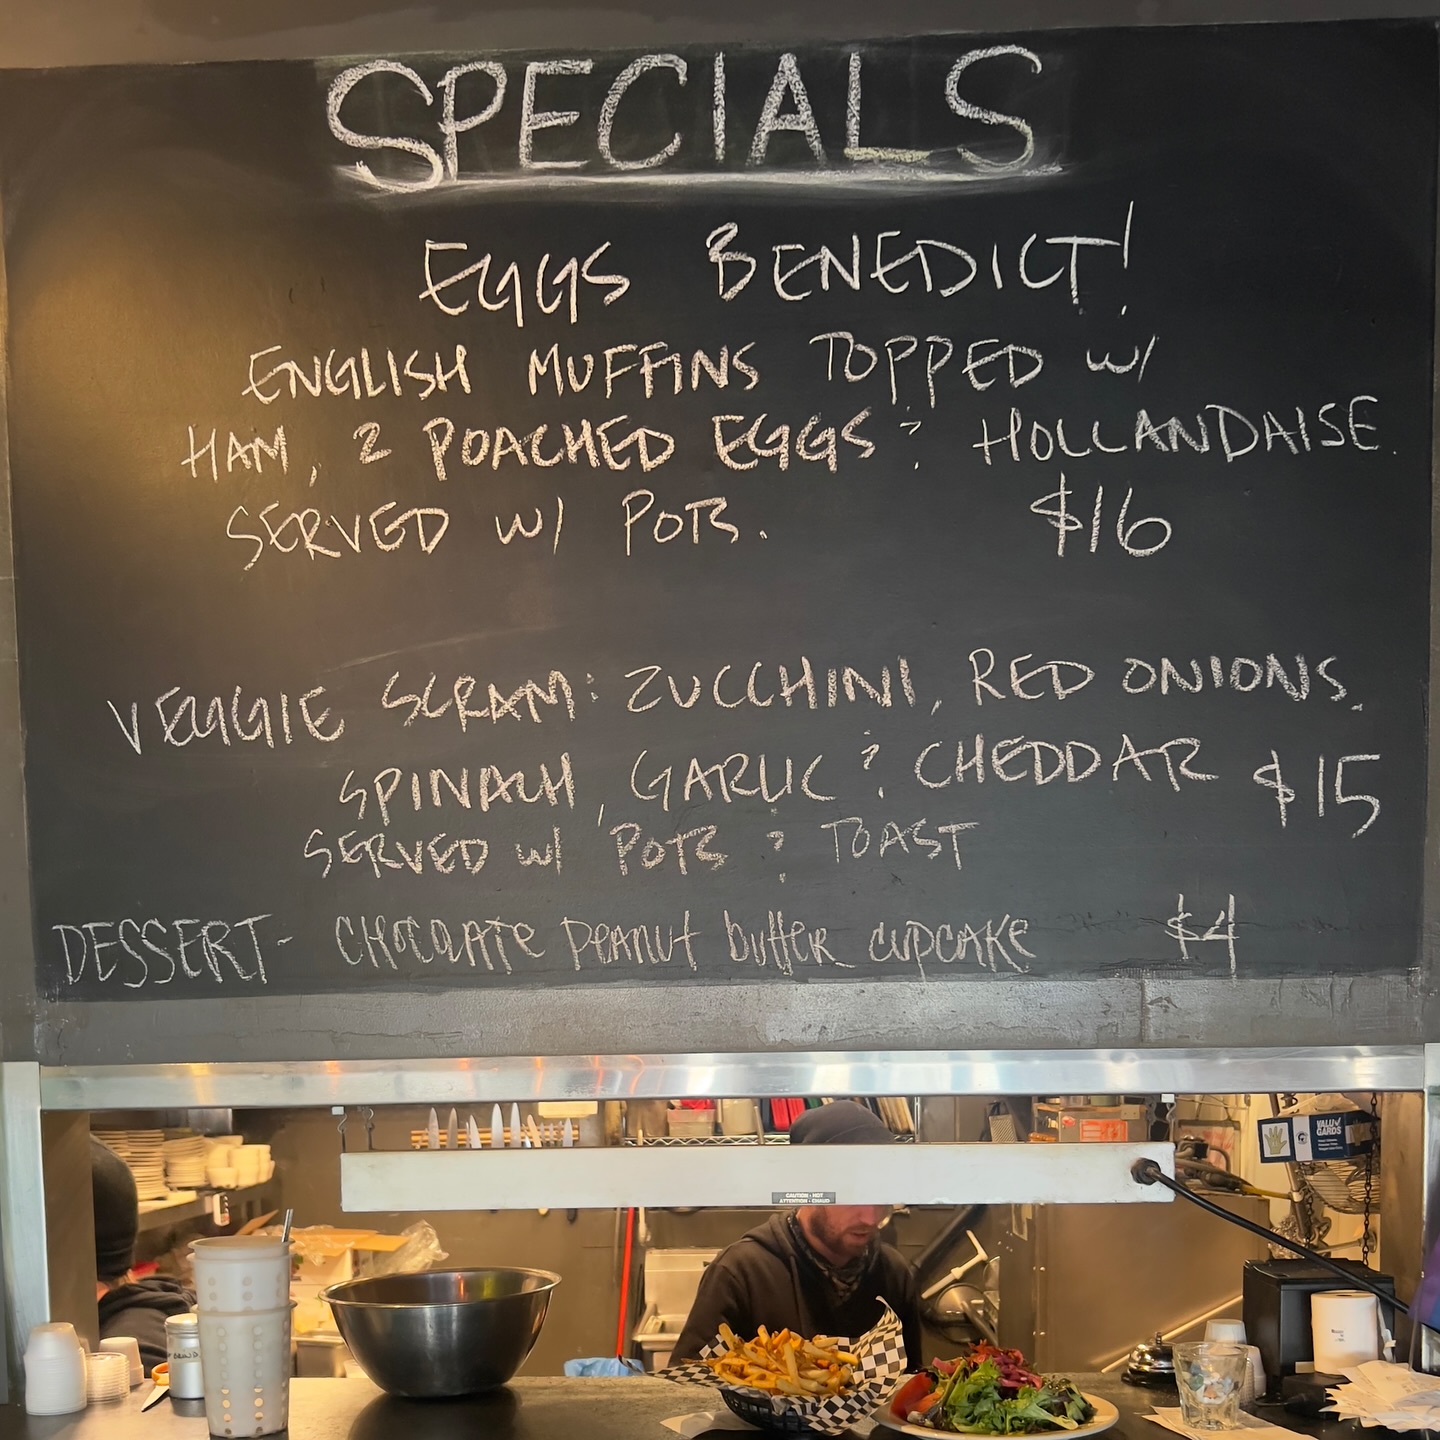 SPECIALS
EGGS BENEDICT!
ENGLISH MUFFINS TOPPED W/
HAM, 2 POACHED EGGS & HOLLANDAISE.
SERVED W/ POTS. $16
VEGGIE SCRAM: ZUCCHINI, RED ONIONS,
SPINACH, GARLIC & CHEDDAR $15
SERVED W/ POTS & TOAST
DESSERT - CHOCOLATE PEANUT butter CUPCAKE $4
CAUTION - HOT
ATTENTION - CHAUD
VALU
GARDS